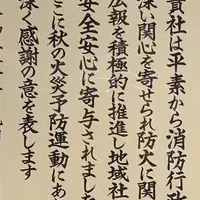 貴社は平素から消防行政
深い関心を寄せられ防火に関
広報を積極的に推進し地域社
安全安心に寄与されました
こに秋の火災予防運動にあ
深く感謝の意を表します